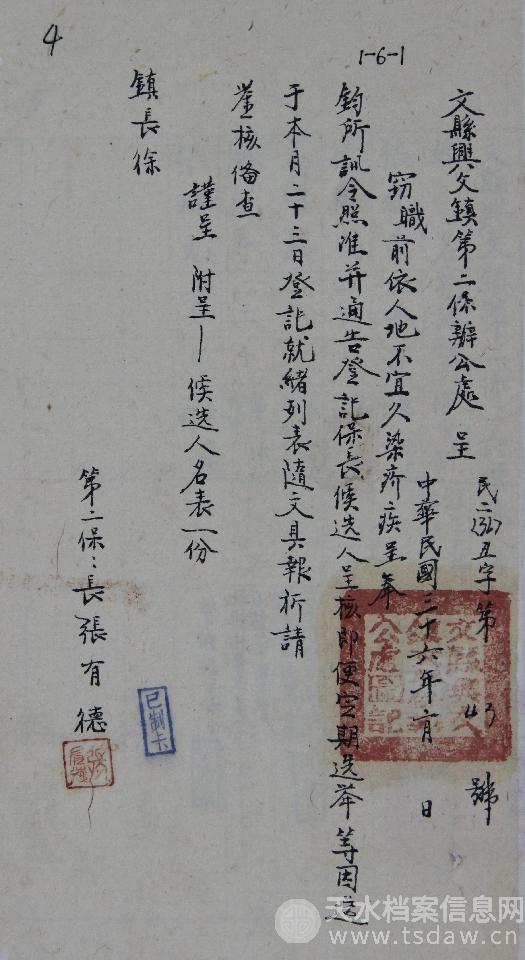 4
1-6-1
文縣興文鎮第二保辦公處 呈
民二 五字第 43 號
中華民國三十六年 月 日
窃職前依人地不宜久染疥疾呈奉
鈞所訊令照准并通告登記保長候选人呈核即便定期选举等因遵
于本月二十三日登記就緒列表隨文具報祈請
鉴核偹查
謹呈 附呈一候选人名表一份
鎮長徐
第二保:長張有德
文縣興文
公處圖記
已制卡
天水档案信息网
www.tsdaw.cn